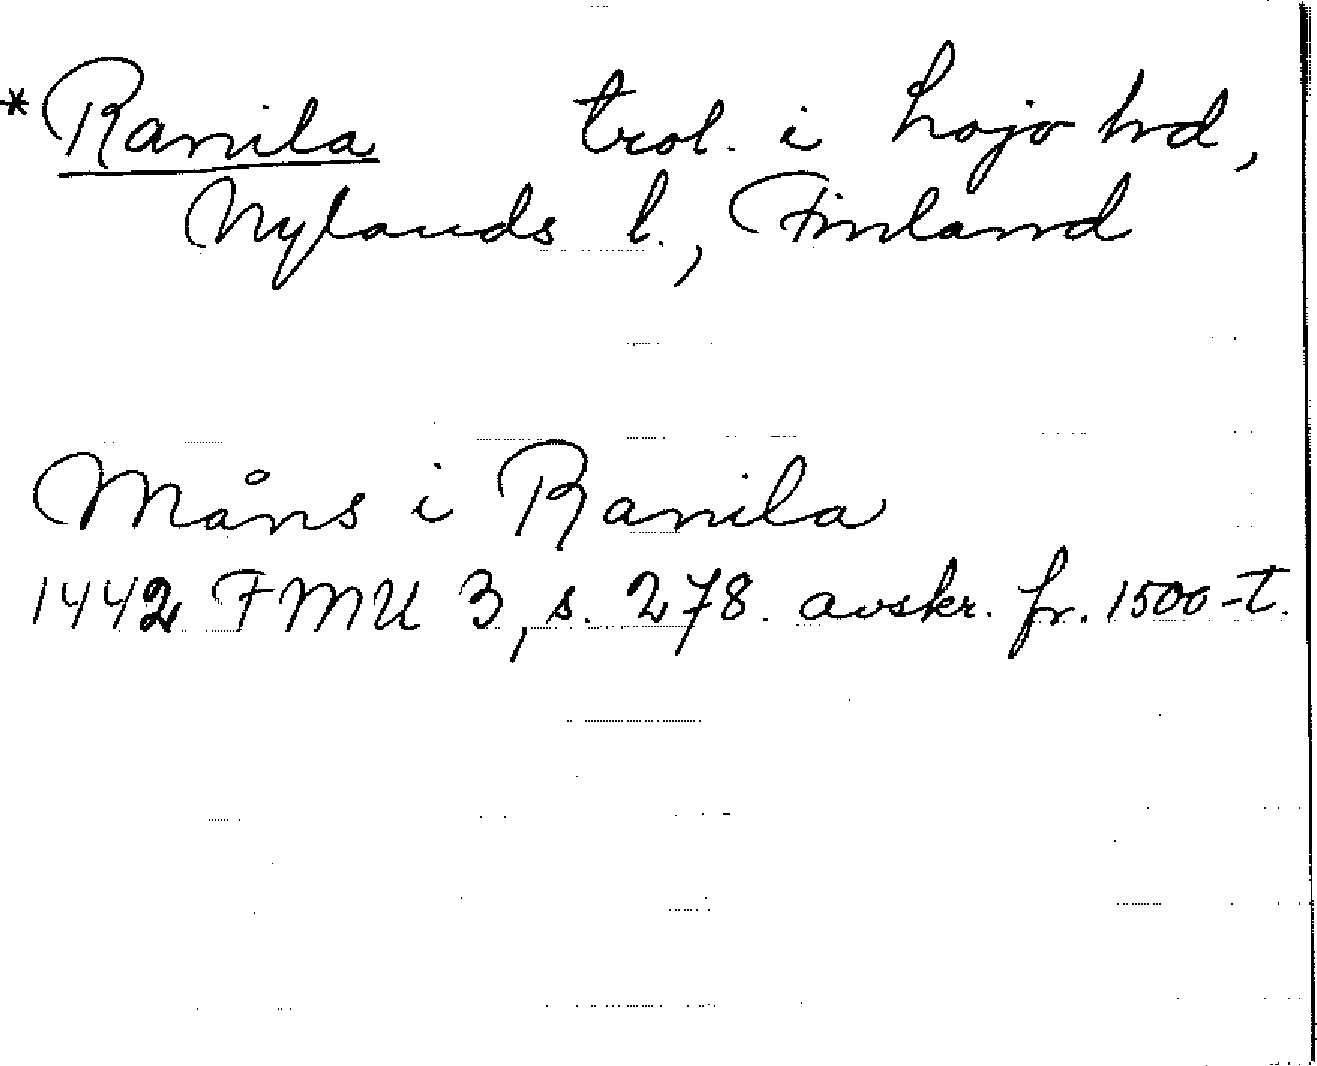 *Ranila trol. i Lojo hrd,
Nylands l., Finland
Måns i Ranila
1442 FMU 3, s. 278. avskr. fr. 1500-t.